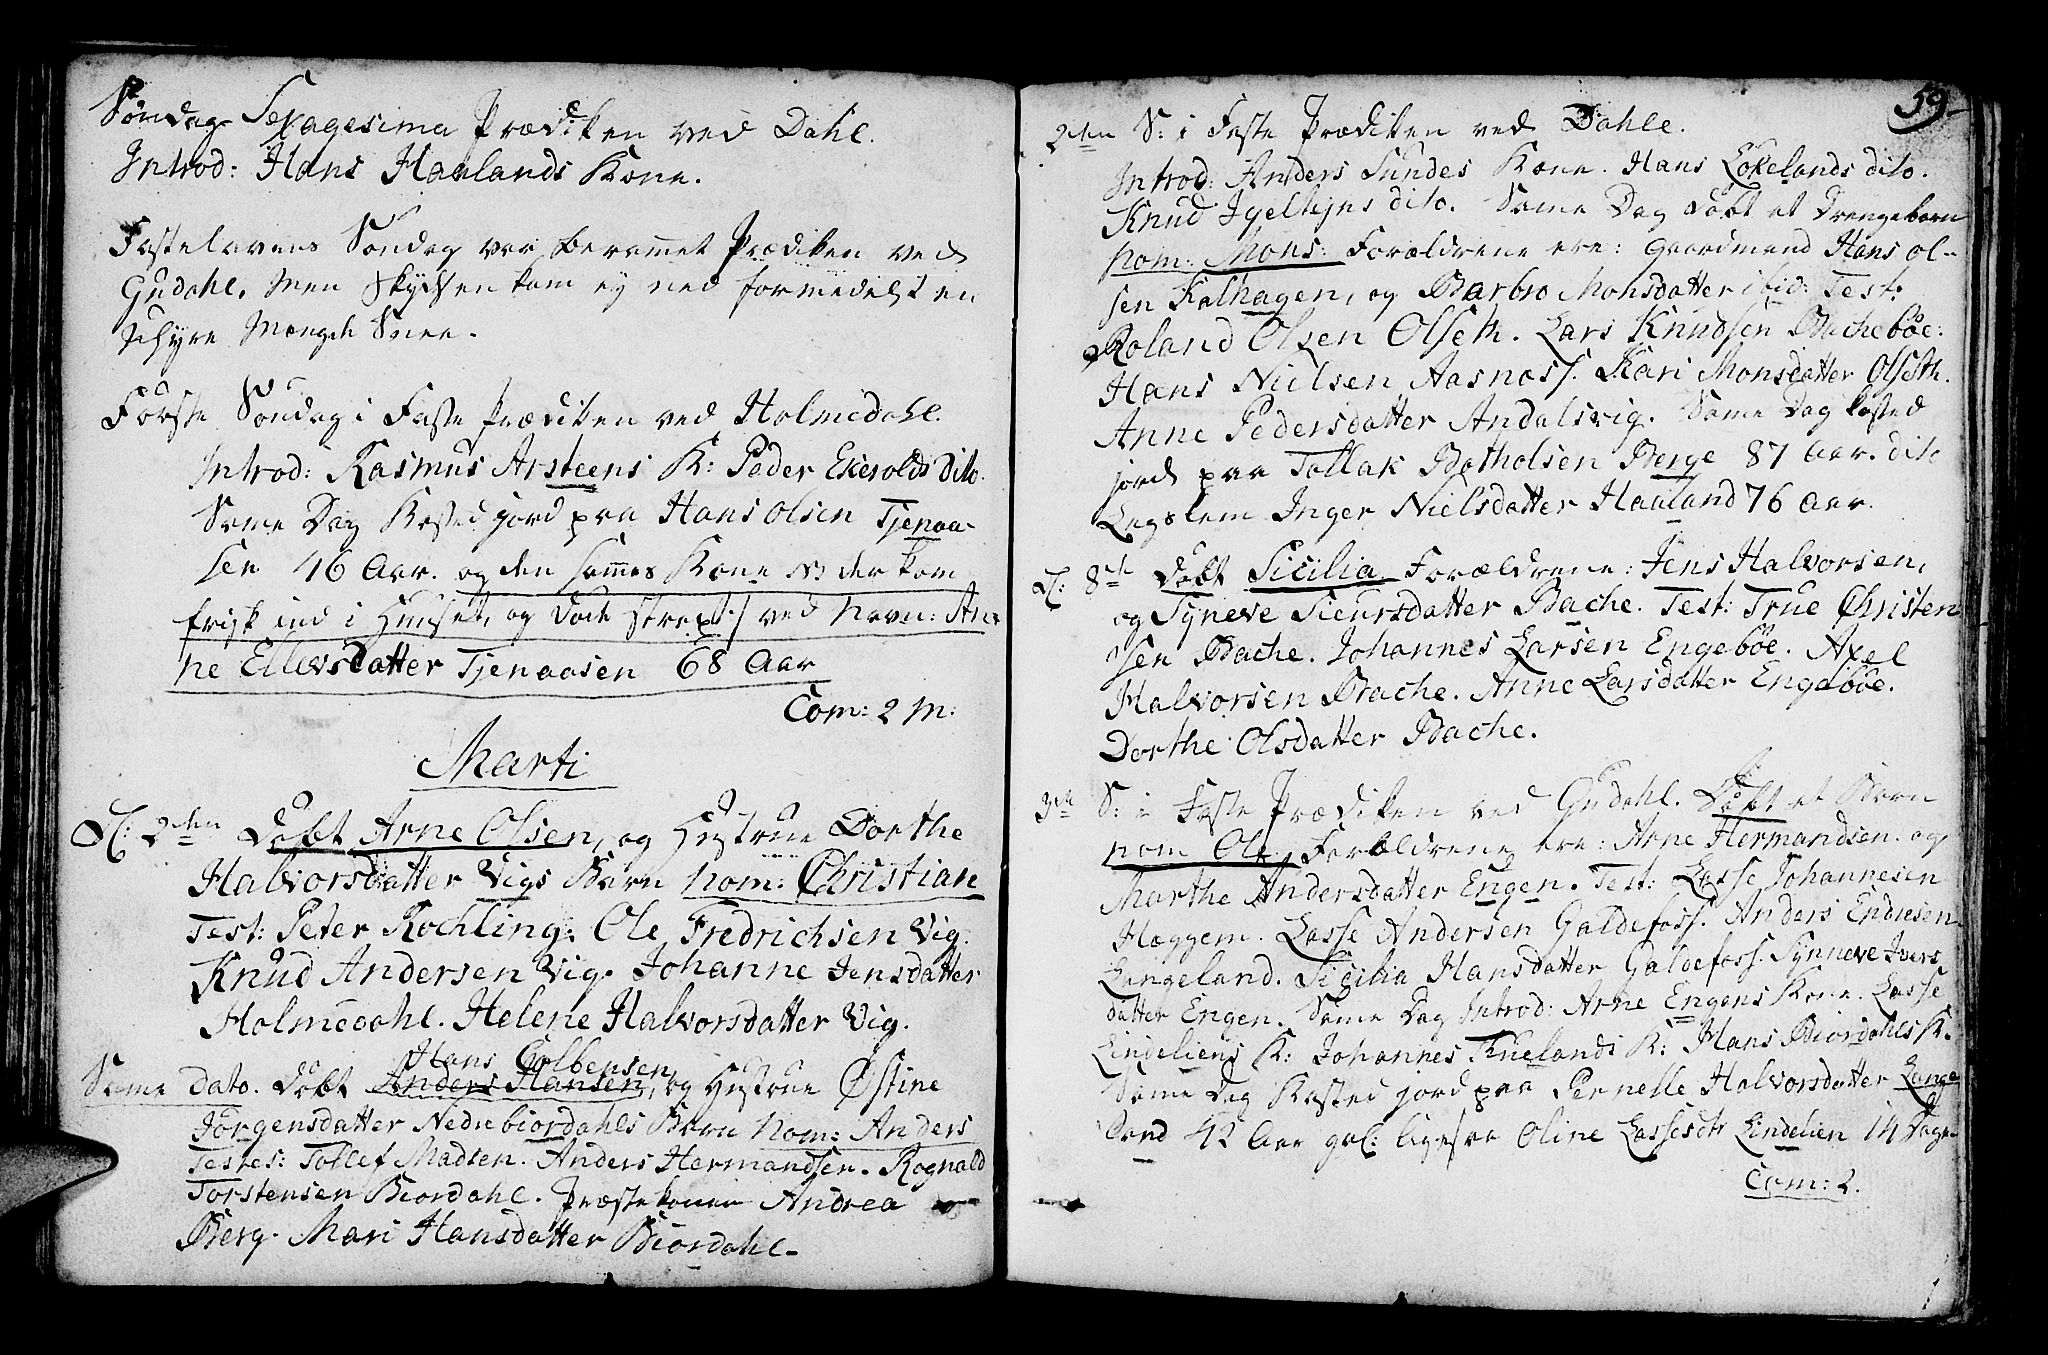 Søndag Sexagesima Prædiken ved Dahl.
Introd: Hans Haalands Kone.
Fastelavens Søndag var berammet Prædiken ved
Gudahl. Men Skydsen kom ey ned formedelst en
Uhyre Mængde Snee.
Første Søndag i Faste Prædiken ved Holmedahl.
Introd: Rasmus Arsteens K: Peder Exerolds Dito.
Same Dag Kasted jord paa Hans Olsen Tjenaa-
sen 46 Aar. og den sammes Kone NB der kom
frisk ind i Huuset, og døde strax :/ ved Navn: An-
ne Ellevsdatter Tjenaasen 68 Aar
Com: 2 M:
Marti
D: 2den Døbt Arne Olsen, og Hustrue Dorthe
Halvorsdatter Vigs Barn nom: Christian
Test: Peter Rochling. Ole Fredrichsen Vig.
Knud Andersen Vig. Johanne Jensdatter
Holmedahl. Helene Halvorsdatter Vig.
Hans Colbensen
Same dato. Døbt Anders Hansen, og Hustrue Østine
Jörgensdatter Nedrebiordahls Barn nom: Anders
Testes: Tollef Madsen. Anders Hermandsen. Rognald
Torstensen Biordahl. Præstekonen Andrea
Berg. Mari Hansdatter Biordahl.
59
2den S: i Faste Prædiken ved Dahle.
Introd: Anders Sundes Kone. Hans Lökelands dito.
Knud Igelhjns dito. Same Dag døbt et Drengebarn
nom: Mons: Forældrene ere: Gaardmand Hans Ol-
sen Kalhagen, og Barbro Monsdatter ibid: Test:
Roland Olsen Olseth. Lars Knudsen Bacheböe:
Hans Nielsen Aasnæss. Kari Monsdatter Olseth.
Anne Pedersdatter Andalsvig. Same Dag kasted
jord paa Tollak Batholsen Berge 87 Aar. dito
Legslem Inger Nielsdatter Haaland 76 Aar.
D: 8de Døbt Sicilia Forældrene: Jens Halvorsen,
og Syneve Siursdatter Bache. Test: True Christen
sen Bache. Johannes Larsen Engeböe. Axel
Halvorsen Bache. Anne Larsdatter Engeböe.
Dorthe Olsdatter Bache.
3de S: i Faste Prædiken ved Gudahl. Døbt et Barn
nom Ole, Forældrene ere: Arne Hermandsen. og
Marthe Andersdatter Engen. Test: Lasse Johannesen
Hæggem. Lasse Andersen Galdefoss. Anders Endresen
Langeland. Sicilia Hansdatter Galdefoss. Synneve Ivers
datter Engen. Same Dag Introd: Arne Engens Kone. Lasse
Lindeliens K: Johannes Truelands K: Hans Biordahls K.
Same Dag Kasted jord paa Pernelle Halvorsdatter Lange
land 42 Aar gml: ligesaa Oline Lassesdtr Lindelien 14 Dage
Com: 2.